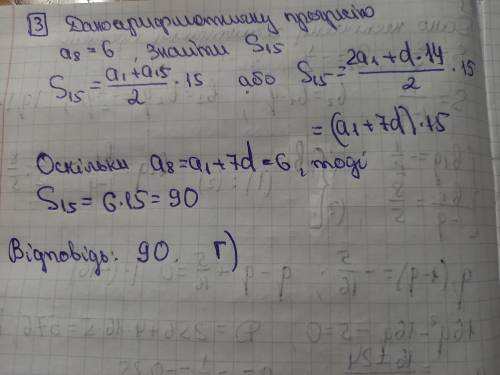 3 Дано арифметичну прогресію
a₈ = 6, знайти S₁₅
S₁₅ = (a₁ + a₁₅)/2 · 15 або S₁₅ = (2a₁ + d · 14)/2 · 15
= (a₁ + 7d) · 15
Оскільки a₈ = a₁ + 7d = 6, тоді
S₁₅ = 6 · 15 = 90
Відповідь: 90. г)